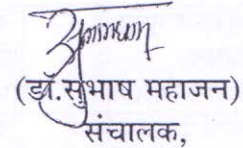 (डॉ.सुभाष महाजन)
संचालक,